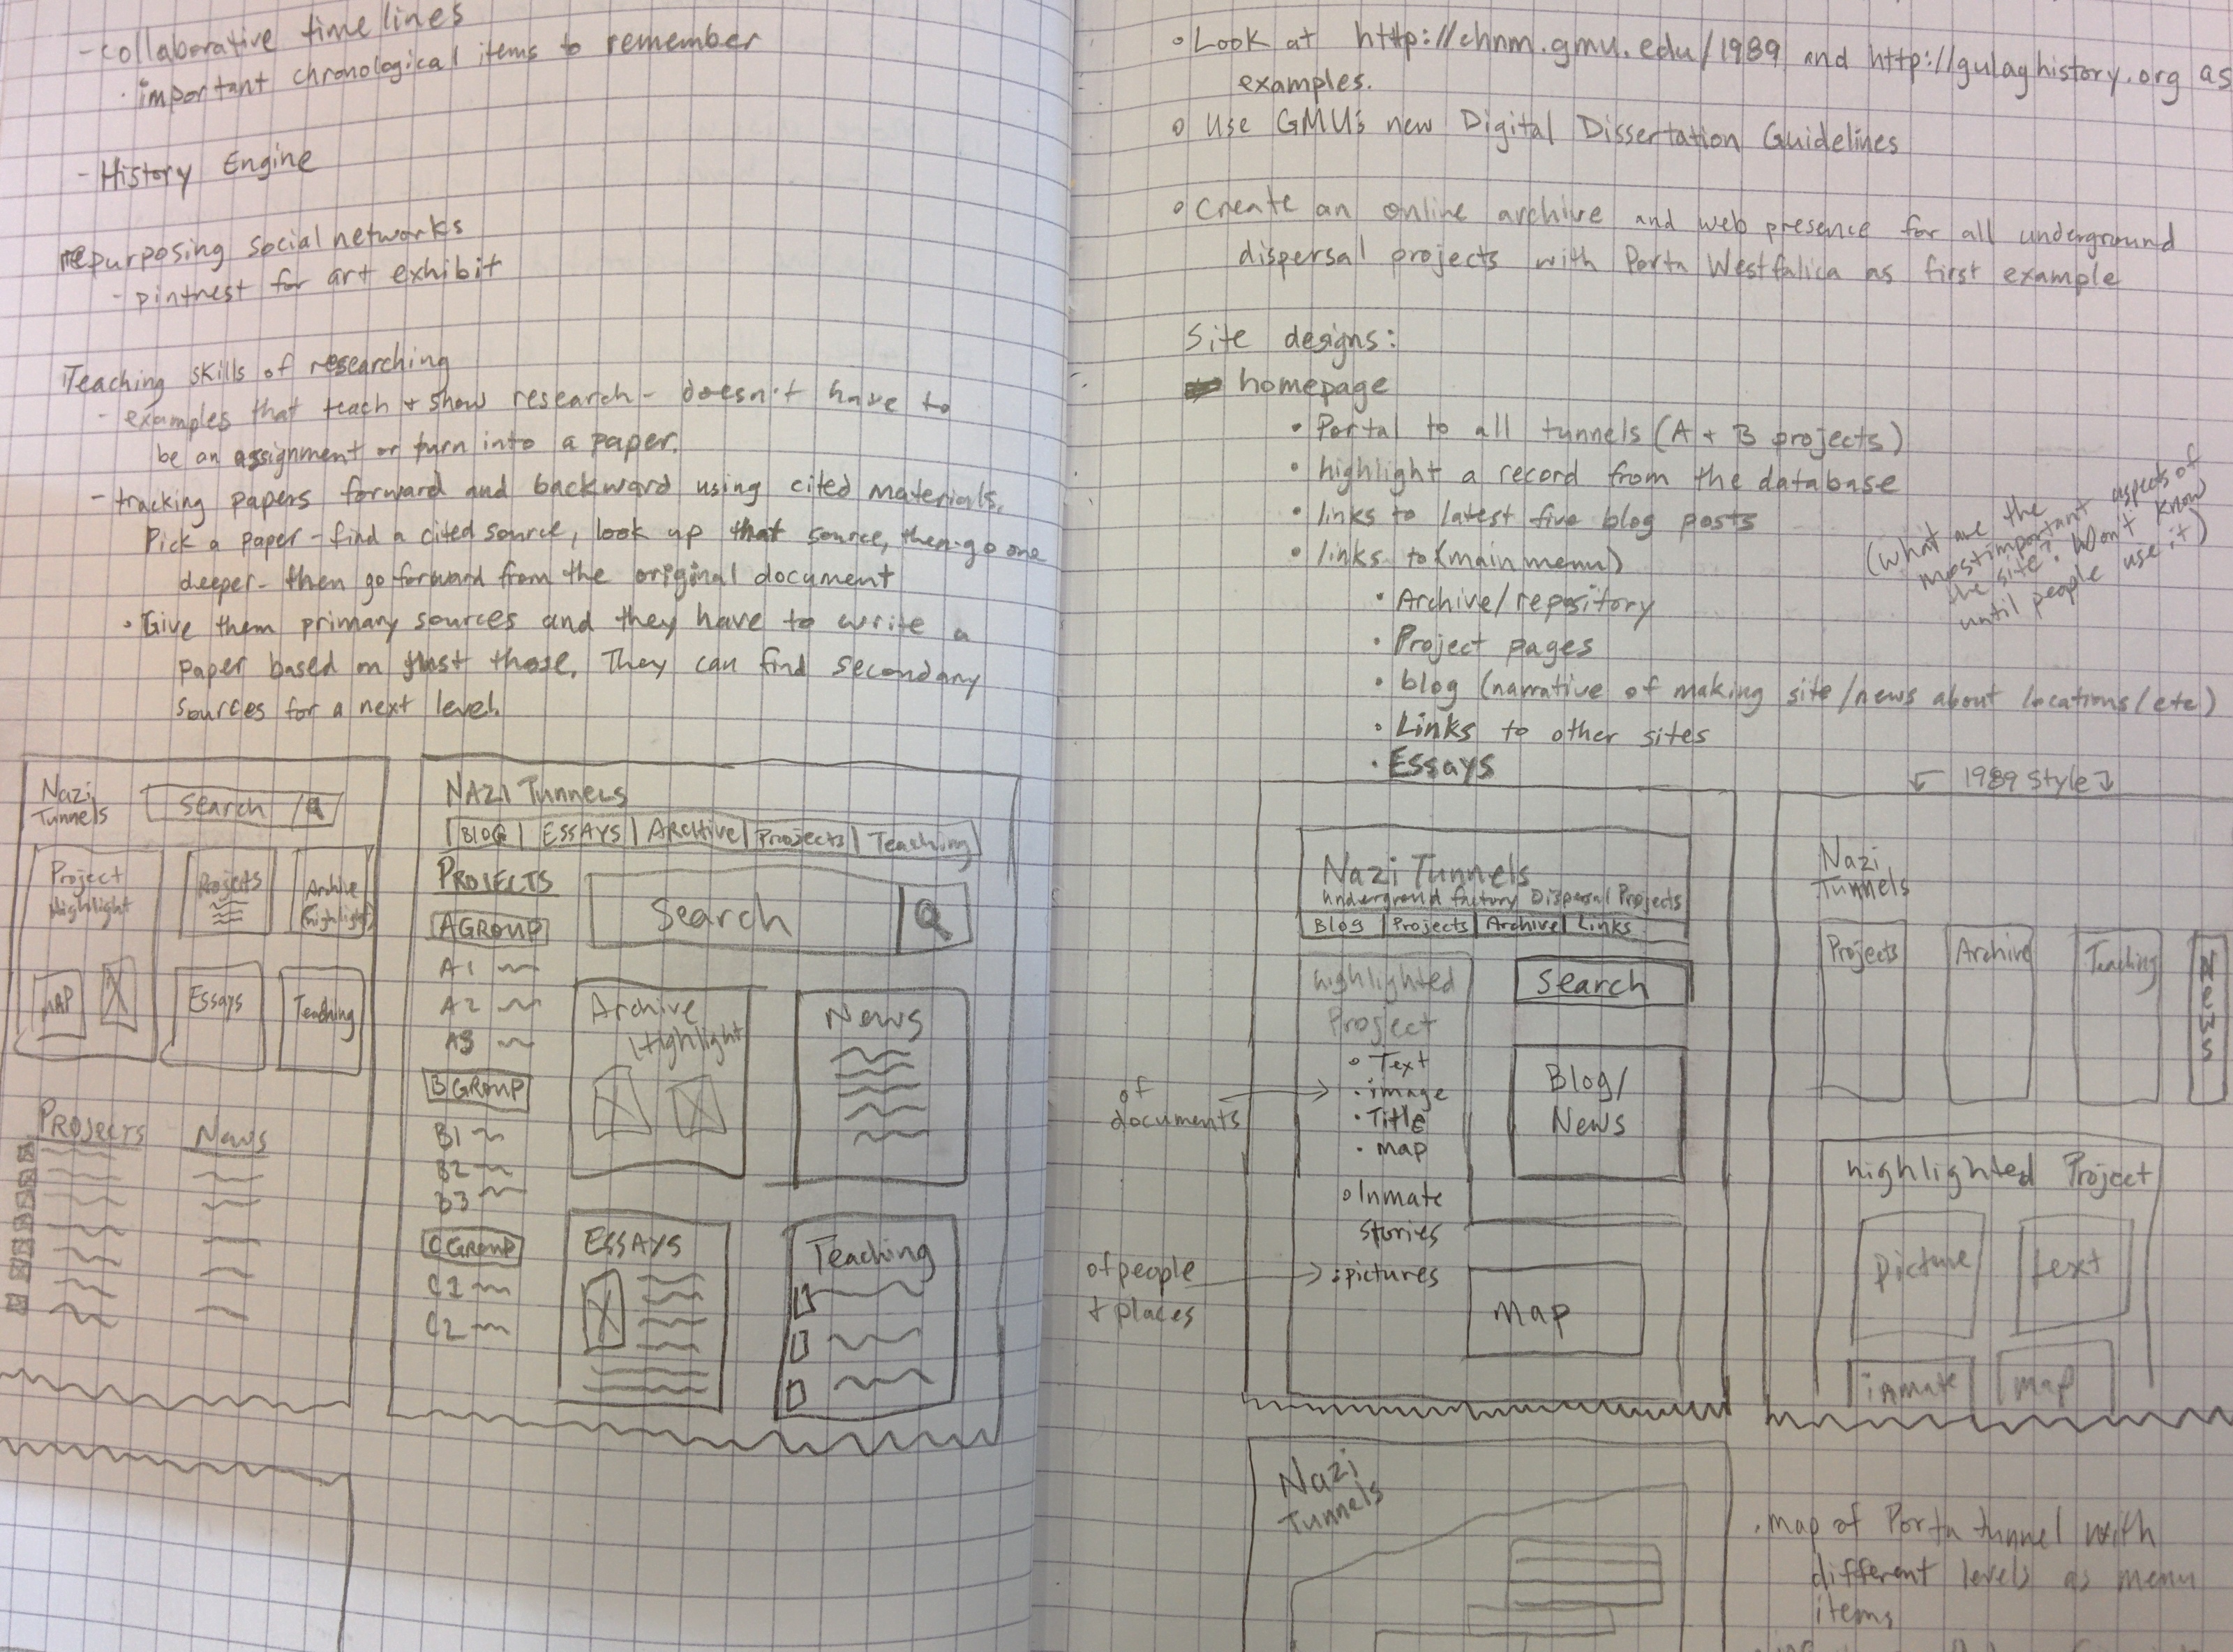 - collaborative timelines
· important chronological items to remember
- History Engine
repurposing social networks
- pintrest for art exhibit
Teaching skills of researching
- examples that teach + show research - doesn't have to
be an assignment or turn into a paper.
- tracking papers forward and backward using cited materials.
Pick a paper - find a cited source, look up that source, then go one
deeper - then go forward from the original document
· Give them primary sources and they have to write a
paper based on just those. They can find secondary
sources for a next level.
Nazi
Tunnels
Search
Project
Highlight
Projects
Archive
(highlight)
MAP
Essays
Teaching
PROJECTS
News
NAZI TunnELS
BLOG | ESSAYS | ARCHIVE | Projects | Teaching
PROJECTS
Search
A GROUP
A1
A2
A3
B GROUP
B1
B2
B3
C GROUP
C1
C2
Archive
Highlight
News
ESSAYS
Teaching
o Look at http://chnm.gmu.edu/1989 and http://gulaghistory.org as
examples.
o Use GMU's new Digital Dissertation Guidelines
o Create an online archive and web presence for all underground
dispersal projects with Porta Westfalica as first example
Site designs:
homepage
· Portal to all tunnels (A + B projects)
· highlight a record from the database
· links to latest five blog posts
· links to (main menu)
· Archive/repository
· Project pages
· blog (narrative of making site/news about locations/etc)
· Links to other sites
· Essays
(What are the
most important aspects of
the site? Won't know
until people use it)
1989 style
Nazi Tunnels
Underground factory Dispersal Projects
Blog | Projects | Archive | Links
highlighted
Project
o Text
· image
· Title
· map
o Inmate
stories
: pictures
Search
Blog/
News
map
of
documents
of people
+ places
Nazi
Tunnels
Projects
Archive
Teaching
News
highlighted Project
Picture
text
inmate
map
Nazi
Tunnels
· map of Porta tunnel with
different levels as menu
items